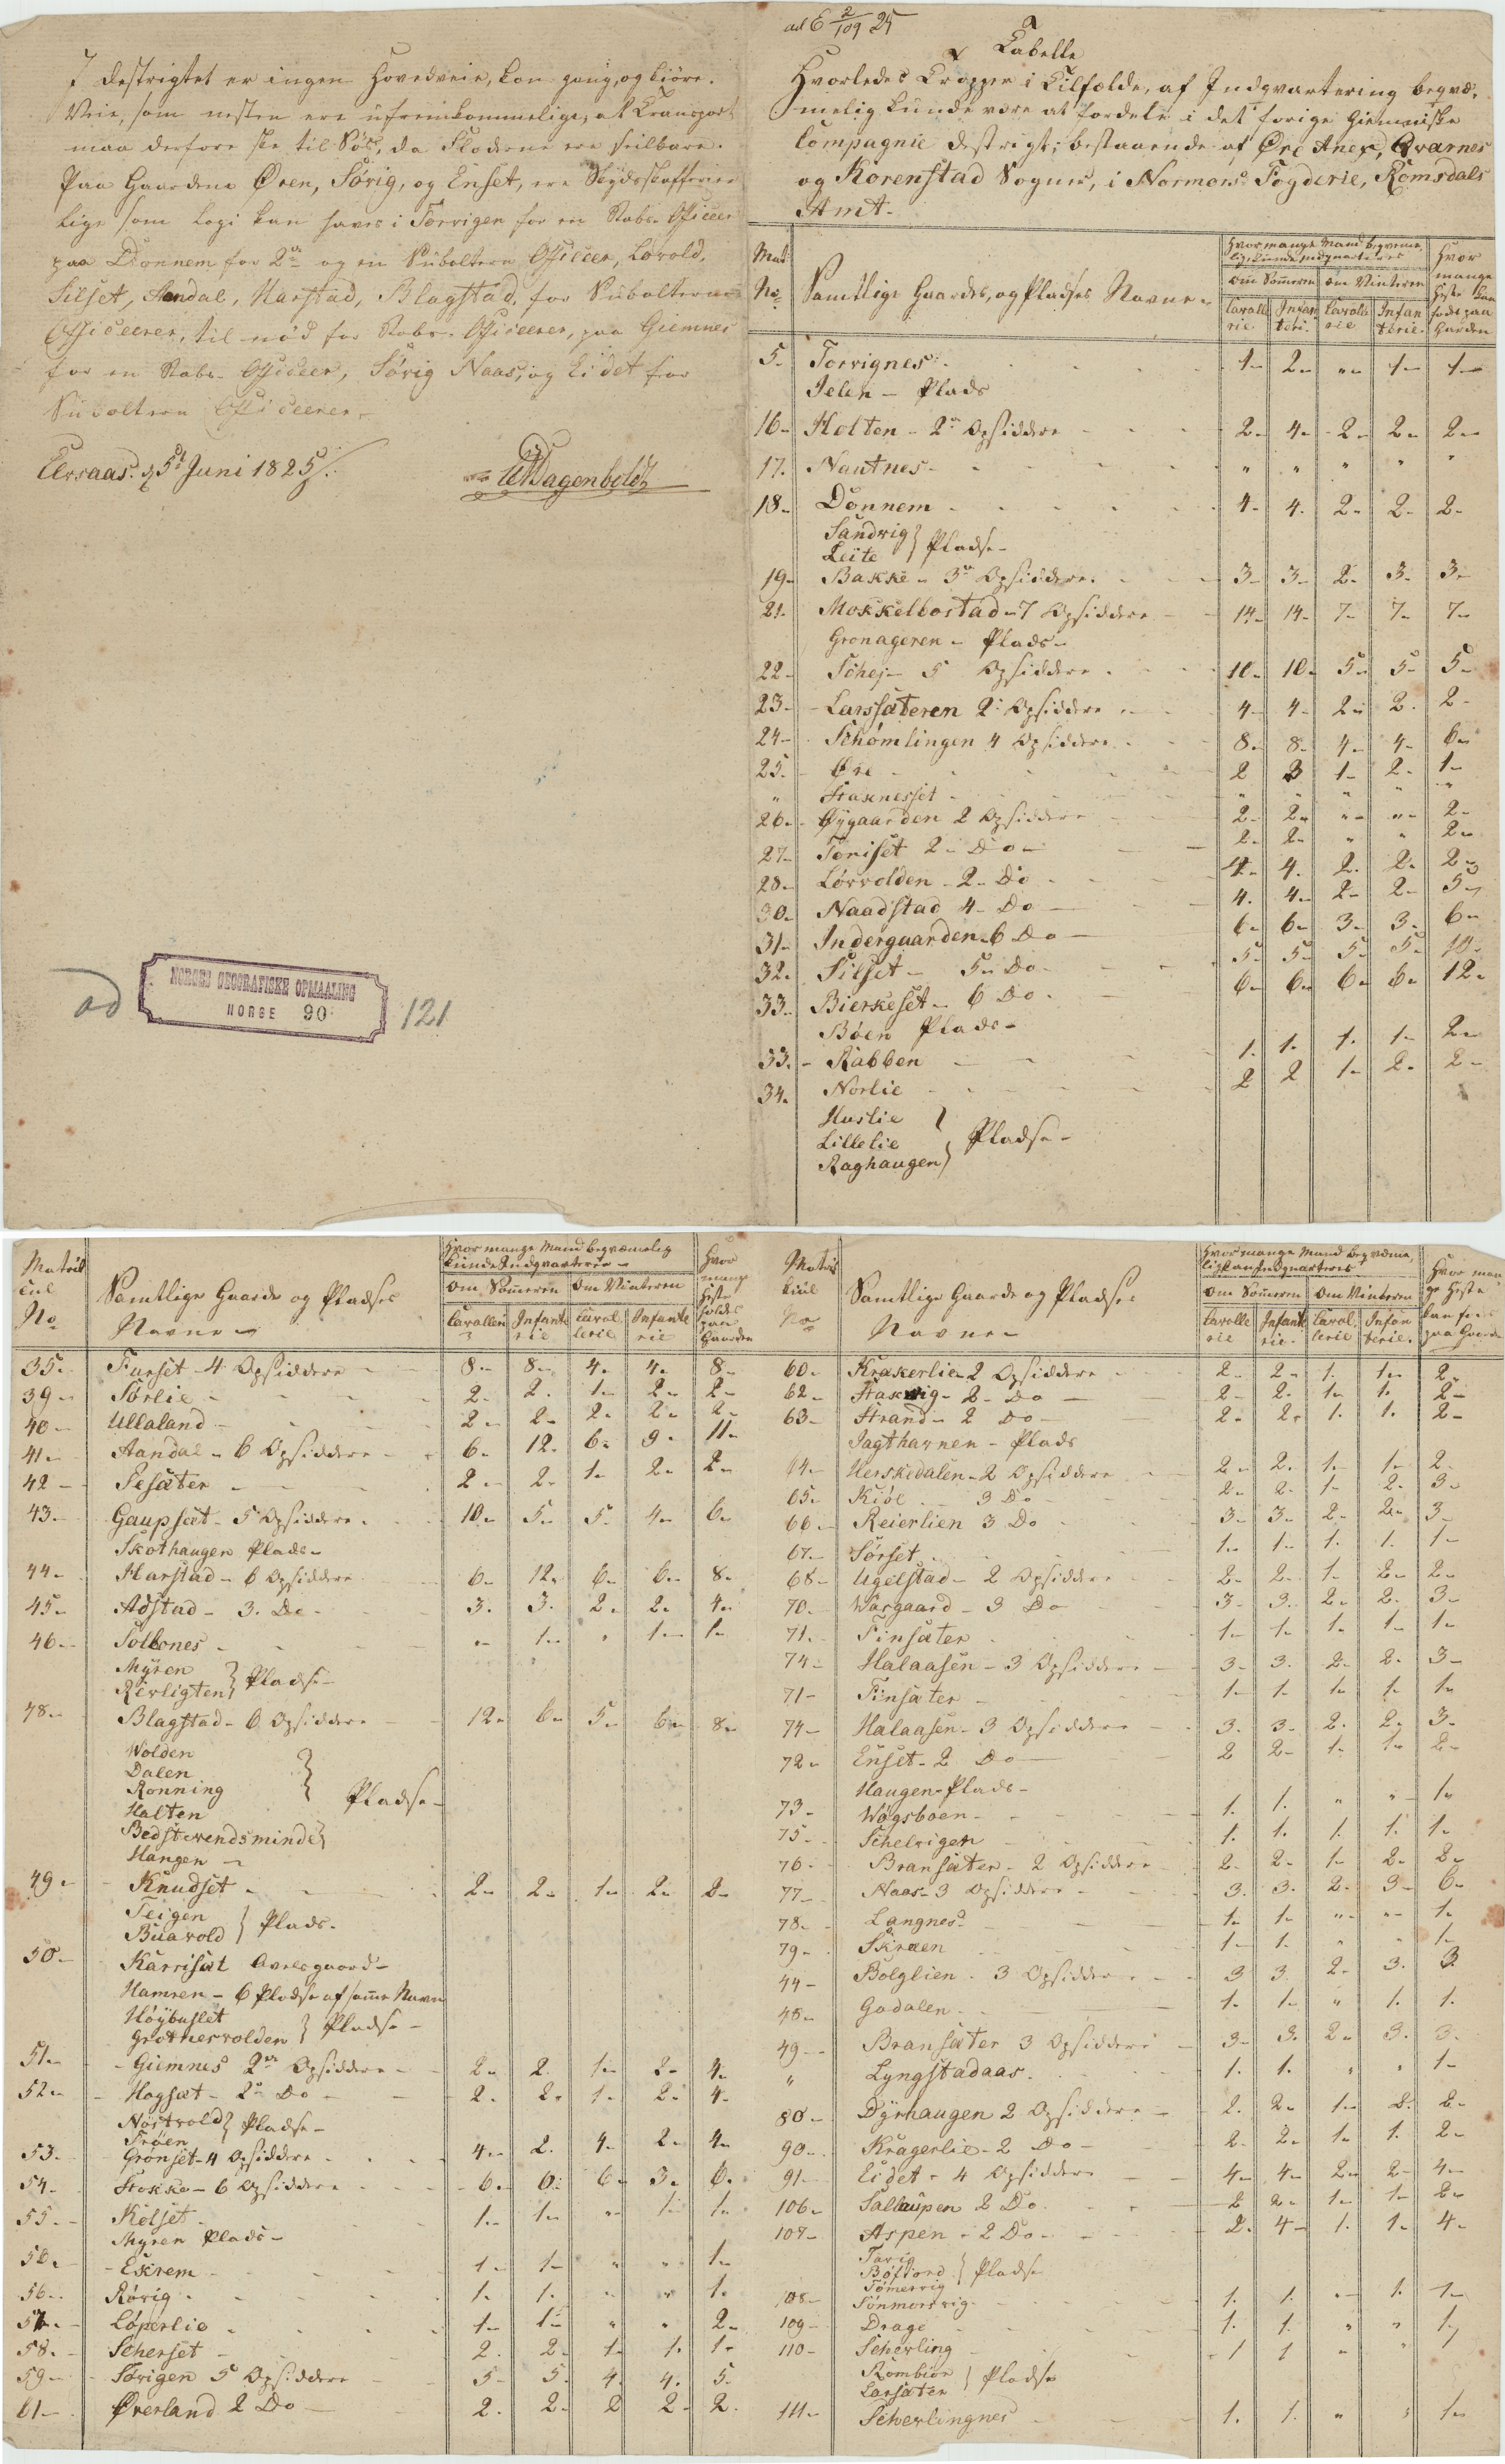 I destrigtet er ingen Hovedveie, kun gang, og kiöre.
Veie, som nesten ere ufremkommelige, al Transport
maa derfore ske til Söes, da Floderne ere seilbare.
Paa Gaardene Øren, Sörig, og Enset, ere Skydsskafferier
lige som Logi kan haves i Torrigen for en Stabs-Officeer
paa Dönnem for 2de og en Subaltern Officeer, Lovold,
Silset, Aandal, Harstad, Blagstad, for Subalterne
Officeerer, til nöd for Stabs-Officeerer, paa Giemnes
for en Stabs-Officeer, Sörig Naas, og Eidet for
Subaltern Officeerer.
d 5t Juni 1825
NORGES GEOGRAFISKE OPMAALING
ad NORGE 90 121
ad E 2/109 25
Tabelle
Hvorledes Tropper i Tilfælde, af Indqvartering beqvæ,
melig kunde være at fordele i det forige Giemniske
Compagnie destrigt, bestaaende af Øre Anex, Qvarnes
og Korenstad Sogne, i Normørs Fogderie, Romsdals
Amt.
Mat: No
Samtlige Gaardes, og Pladses Navne
Hvor mange Mand beqveme,
lig kunde Indqvarteres
om Sommeren om Vinteren
Cavallerie Infanterie Cavallerie Infanterie
Hvor mange Heste kan födes paa Gaarden
5 Torvignes 1 2 " 1 1
Jelen - Plads
16 Holten - 2de Opsiddere 2 4 2 2 2
17 Nautnes " " " " "
18 Dönnem 4 4 2 2 2
Sandvig
Leite } Pladse
19 Bakke - 3de Opsiddere 3 3 2 3 3
21 Mokkelbostad - 7 Opsiddere 14 14 7 7 7
Gronageren - Plads
22 Schej - 5 Opsiddere 10 10 5 5 5
23 Larssæteren 2 Opsiddere 4 4 2 2 2
24 Schømlingen 4 Opsiddere 8 8 4 4 6
25 Øre 2 3 1 2 1
" Staknesset " " " " "
26 Øygaarden 2 Opsiddere 2 2 " " 2
27 Toniset 2 Do 2 2 " " 2
28 Lörvolden - 2 Do 4 4 2 2 2
30 Naadstad 4 Do 4 4 2 2 5
31 Indergaarden 6 Do 6 6 3 3 6
32 Silset - 5 Do 5 5 5 5 10
33 Bierkeset - 6 Do 6 6 6 6 12
Böen Plads
33 Rabben 1 1 1 1 2
34 Norlie 2 2 1 2 2
Huslie
Lillelie } Pladse
Raghaugen
Matricul No
Samtlige Gaarde og Pladses
Navne
Hvor mange Mand beqvæmelig
kunde Indqvarteres
om Sommeren om Vinteren
Cavallerie Infanterie Cavallerie Infanterie
Hvor mange Heste holdes paa Gaarden
35 Furset - 4 Opsiddere 8 8 4 4 8
39 Sörlie 2 2 1 2 2
40 Ullaland 2 2 2 2 2
41 Aandal - 6 Opsiddere 6 12 6 9 11
42 Sesæter 2 2 1 2 2
43 Gaupsæt - 5 Opsiddere 10 5 5 4 6
Skothaugen Plads
44 Harstad - 6 Opsiddere 6 12 6 6 8
45 Adstad - 3 Do 3 3 2 2 4
46 Solbones " 1 " 1 1
Myren
Reiligten } Pladse
48 Blagstad - 6 Opsiddere 12 6 5 6 8
Wolden
Dalen
Ronning
Halten } Pladse
Bedstevendsminde
Hangen
49 Knudset 2 2 1 2 2
Teigen
Buavold } Plads
50 Karrisæt Avelsgaard
Hamren - 6 Pladse af samme Navn
Höybuslet
Grotnesvolden } Pladse
51 Giemnes 2de Opsiddere 2 2 1 2 4
52 Hogsæt - 2de Do 2 2 1 2 4
Nöstvold
Tröen } Pladse
53 Grönset - 4 Opsiddere 4 2 4 2 4
54 Stokke - 6 Opsiddere 6 6 6 3 6
55 Kolset 1 1 " 1 1
Myren Plads
56 Eskrem 1 1 " " 1
56 Rörig 1 1 " " 1
57 Löperlie 1 1 " " 2
58 Scherset 2 2 1 1 1
59 Sörigen 5 Opsiddere 5 5 4 4 5
61 Øverland 2 Do 2 2 2 2 2
Matricul No
Samtlige Gaarde og Pladses
Navne
Hvor mange Mand beqvæme,
lig kan Indqvarteres
om Sommeren om Vinteren
Cavallerie Infanterie Cavallerie Infanterie
Hvor mange Heste kan fodes paa Gaarden
60 Krakerlie 2 Opsiddere 2 2 1 1 2
62 Stakvig - 2 Do 2 2 1 1 2
63 Strand - 2 Do 2 2 1 1 2
Jagthavnen - Plads
64 Herskedalen - 2 Opsiddere 2 2 1 1 2
65 Kiöl 3 Do 2 2 1 2 3
66 Reierlien 3 Do 3 3 2 2 3
67 Sörset 1 1 1 1 1
68 Ugelstad - 2 Opsiddere 2 2 1 2 2
70 Waagaard - 3 Do 3 3 2 2 3
71 Finsæter 1 1 1 1 1
74 Halaasen - 3 Opsiddere 3 3 2 2 3
71 Finsæter 1 1 1 1 1
74 Halaasen - 3 Opsiddere 3 3 2 2 3
72 Enset - 2 Do 2 2 1 1 2
Haugen Plads
73 Wögsboen 1 1 " " 1
75 Schelvigen 1 1 1 1 1
76 Bransæter - 2 Opsiddere 2 2 1 2 2
77 Naas - 3 Opsiddere 3 3 2 3 6
78 Langnes 1 1 " " 1
79 Skraen 1 1 " " 1
44 Bolglien 3 Opsiddere 3 3 2 3 3
48 Gadalen 1 1 " 1 1
49 Bransæter 3 Opsiddere 3 3 2 3 3
" Lyngstadaas 1 1 " " 1
80 Dyrhaugen 2 Opsiddere 2 2 1 2 2
90 Kragerlie - 2 Do 2 2 1 1 2
91 Eidet - 4 Opsiddere 4 4 2 2 4
106 Sallaupen 2 Do 2 2 1 1 2
107 Aspen - 2 Do 2 4 1 1 4
Tarig
Böfiord } Pladse
Tömervig
108 Sönmorsvig 1 1 " 1 1
109 Drage 1 1 " " 1
110 Scherling 1 1 " " 1
Rombiör
Larsæter } Pladse
111 Scherlingnes 1 1 " " 1